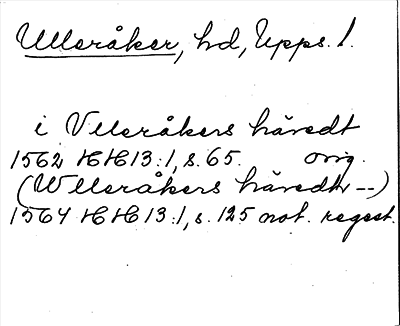 Ulleråker, hd, Upps. l.
i Vlleråkers häredt
1562 HH13:1, s. 65. orig.
(Wlleråkers häredtt --)
1564 HH13:1, s. 125 not. regest.